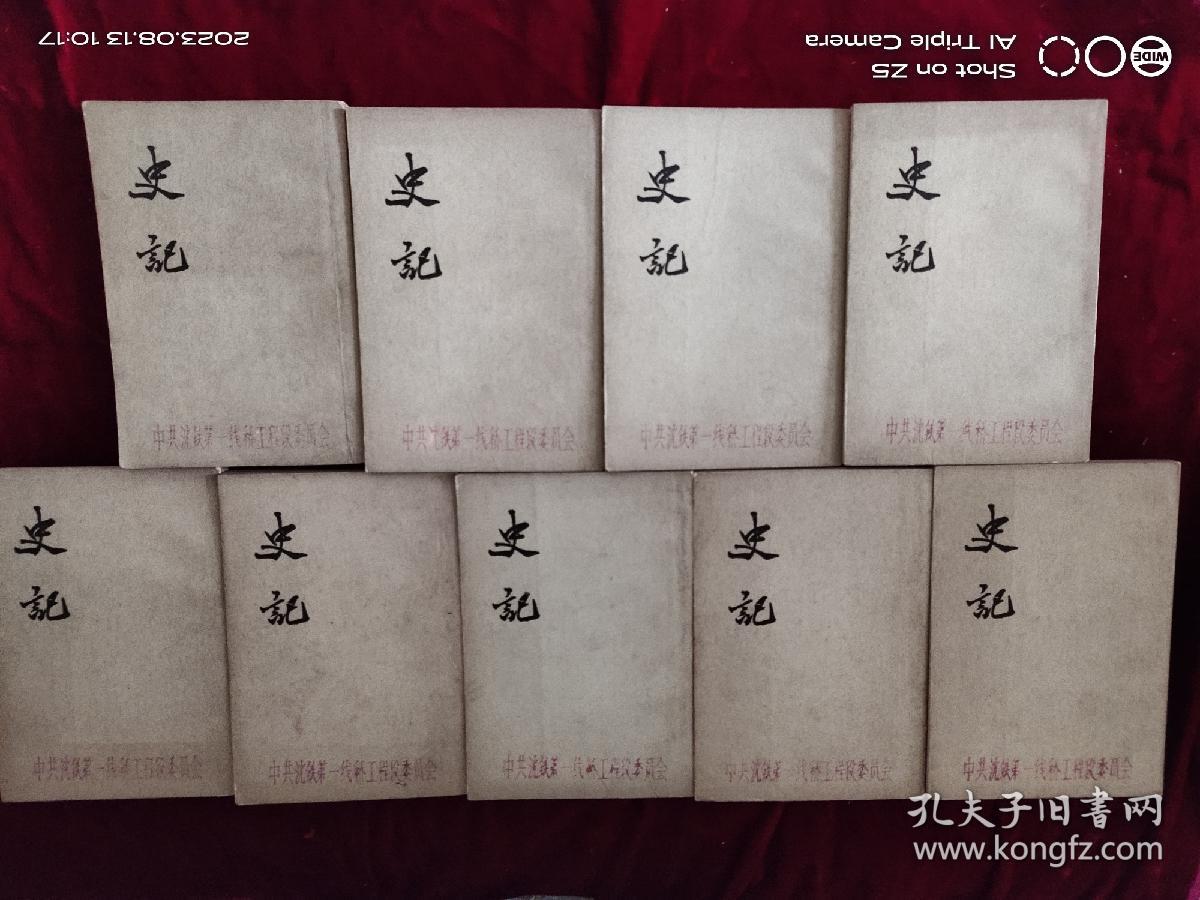 2023.08.13 10:17
Shot on Z5
AI Triple Camera
WIDE
史
记
史
記
史
記
史
記
中共沈铁第一线桥工程段委员会
中共沈铁第一线桥工程段委员会
中共沈铁第一线桥工程段委员会
中共沈铁第一线桥工程段委员会
史
記
史
記
史
記
史
記
史
記
中共沈铁第一线桥工程段委员会
中共沈铁第一线桥工程段委员会
中共沈铁第一线桥工程段委员会
中共沈铁第一线桥工程段委员会
中共沈铁第一线桥工程段委员会
孔夫子旧書网
www.kongfz.com